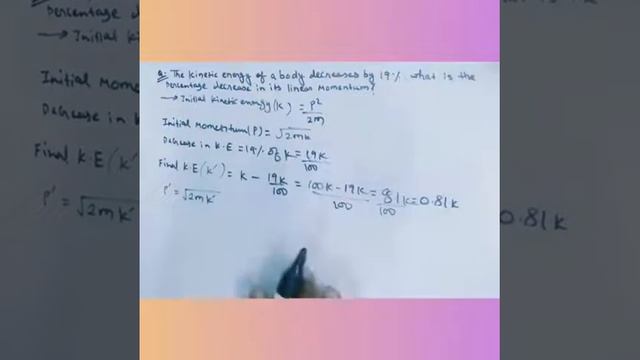 Q: The kinetic energy of a body decreases by 19% what is the
percentage decrease in its linear momentum?
→ Initial kinetic energy (K) = P²/2m
Initial Momentum (P) = √2mK
Decrease in K.E = 19% of K = 19K/100
Final K.E (K') = K - 19K/100 = 100K - 19K/100 = 81K/100 = 0.81K
P' = √2mK'